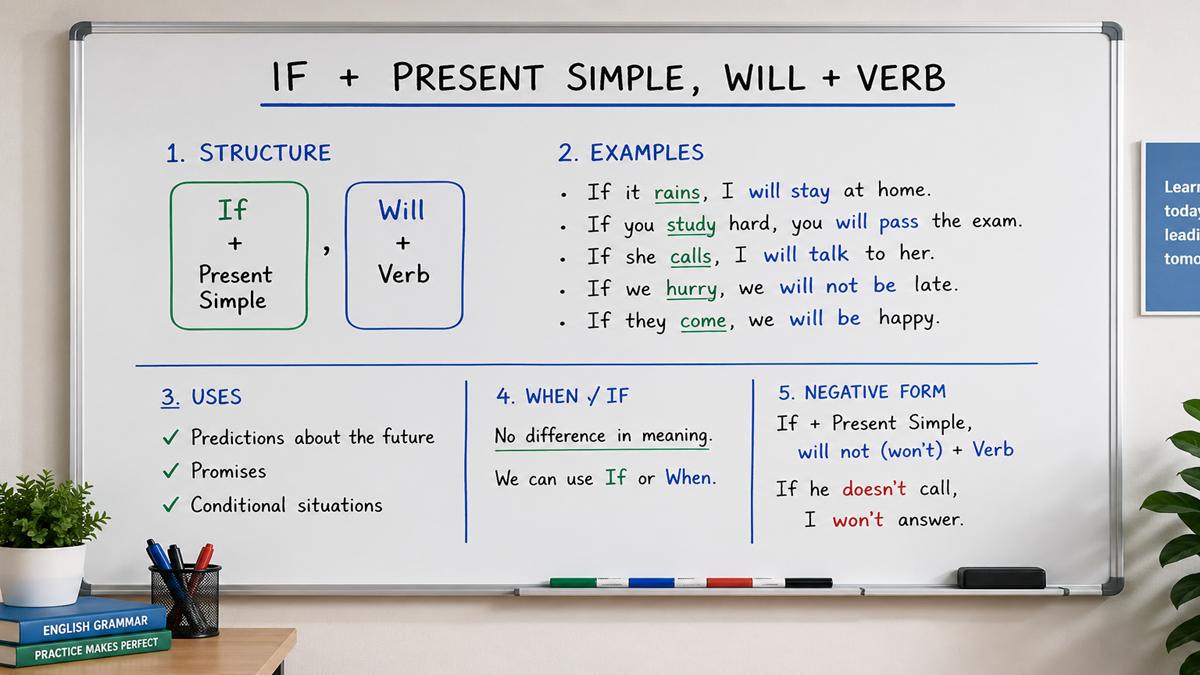 IF + PRESENT SIMPLE, WILL + VERB
1. STRUCTURE
If
+
Present
Simple
,
Will
+
Verb
2. EXAMPLES
• If it rains, I will stay at home.
• If you study hard, you will pass the exam.
• If she calls, I will talk to her.
• If we hurry, we will not be late.
• If they come, we will be happy.
3. USES
✓ Predictions about the future
✓ Promises
✓ Conditional situations
4. WHEN / IF
No difference in meaning.
We can use If or When.
5. NEGATIVE FORM
If + Present Simple,
will not (won't) + Verb
If he doesn't call,
I won't answer.
ENGLISH GRAMMAR
PRACTICE MAKES PERFECT